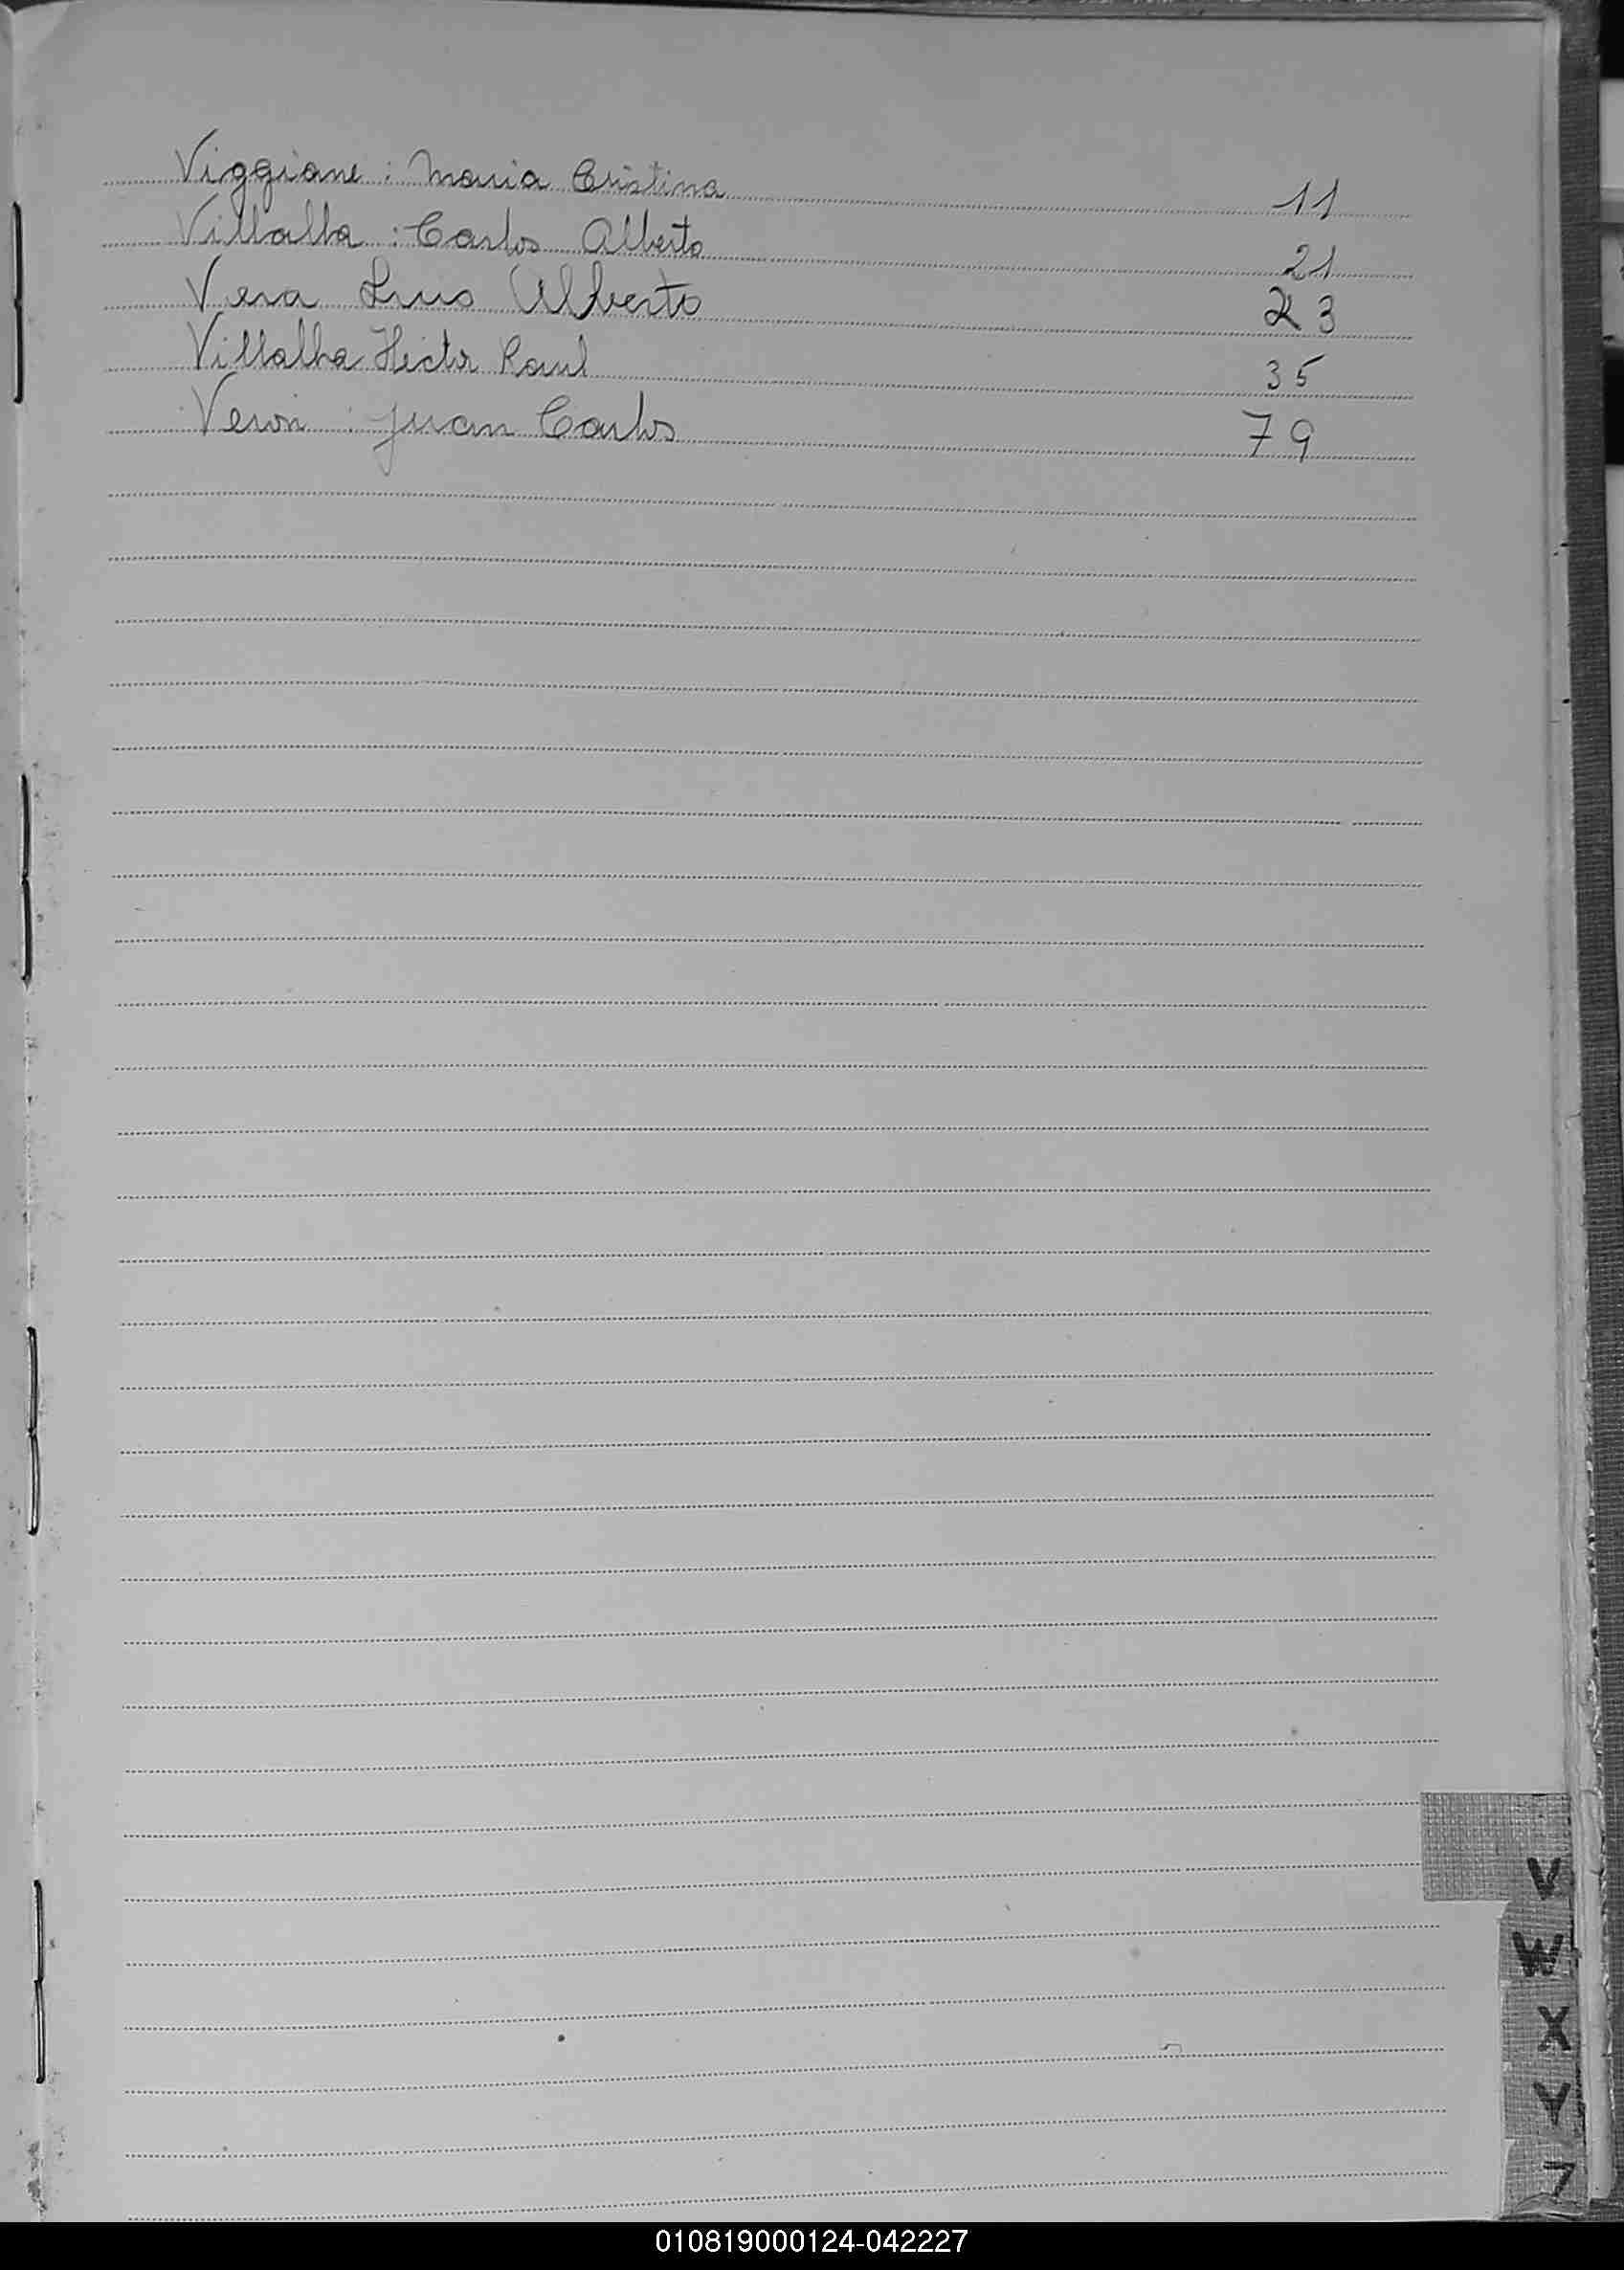 Viggiane : Maria Cristina 11
Villalba : Carlos Alberto 21
Vera Luis Alberto 23
Villalba Hector Raul 35
Veron : Juan Carlos 79
V
W
X
Y
Z
010819000124-042227